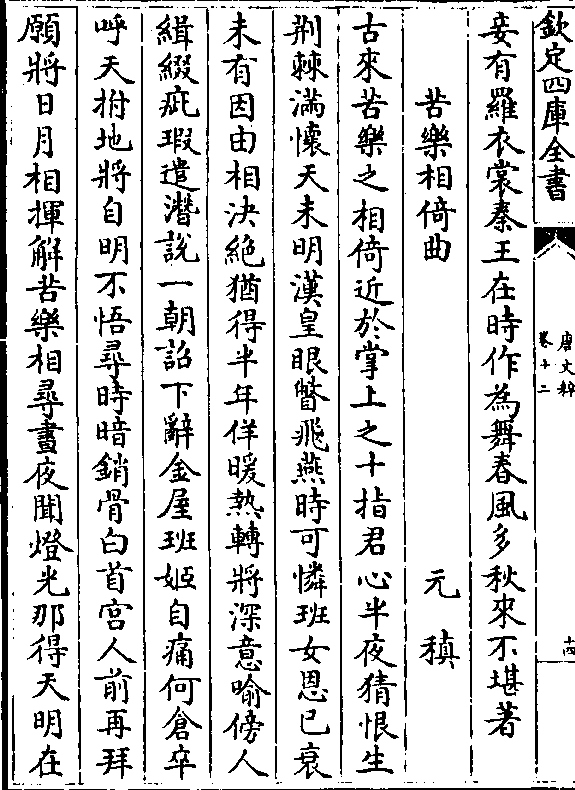 欽定四庫全書
唐文粹
卷十二
十四
妾有羅衣裳秦王在時作為舞春風多秋來不堪著
苦樂相倚曲
元稹
古來苦樂之相倚近於掌上之十指君心半夜猜恨生
荆棘滿懷天未明漢皇眼瞥飛燕時可憐班女恩已衰
未有因由相決絶猶得半年佯暖熱轉將深意喻傍人
緝綴疵瑕遣潛說一朝詔下辭金屋班姬自痛何倉卒
呼天拊地將自明不悟尋時暗銷骨白首宫人前再拜
願將日月相揮解苦樂相尋晝夜聞燈光那得天明在